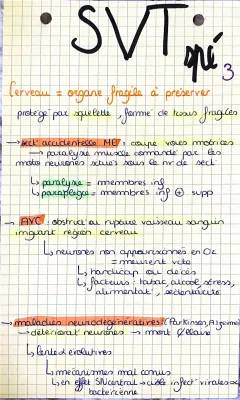 SVT
spé
3
Cerveau = organe fragile à préserver
protégé par squelette, formé de tissus fragiles
→ sect° accidentelle ME : coupe voies motrices
→ paralysie muscle commandé par les
moto neurones situés sous le nv de sect°
↳ paralysie = membres inf
↳ paraplégie = membres inf ⊕ supp
→ AVC : obstruct° ou rupture vaisseau sanguin
irriguant région cerveau
↳ neurones non approvisionnés en O2
= meurent vite
↳ handicap ou décès
↳ facteurs : tabac, alcool, stress,
alimentat°, sédentarité
→ maladies neurodégénératives (Parkinson, Alzheimer)
→ détériorat° neurones → mort ȼellulaire
↳ lente & évolutives
↳ mécanismes mal connus
↳ en effet SN central → cible infect° virales ou
bactérienne